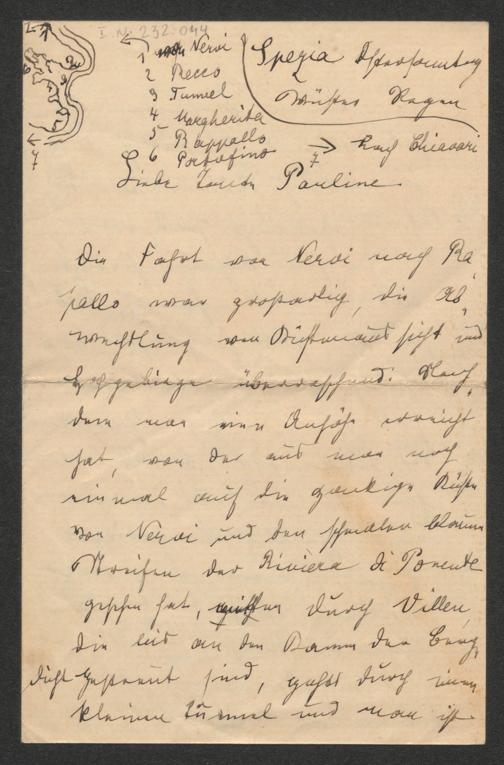 I. N. 232.044
1 Nervi
2 Recco
3 Tunnel
4 Margherita
5 Rappallo
6 Portofino
7 nach Chiavari
Spezia Ostersonntag
Wüster Regen
Liebe Tante Pauline
Die Fahrt von Nervi nach Ra
pallo war großartig, die Ab
wechslung von Küstenaussicht und
Hochgebirge überraschend. Nach
dem man eine Anhöhe erreicht
hat, von der aus man noch
einmal auf die zackige Küste
von Nervi und den schmalen blauen
Streifen der Riviera di Ponente
gesehen hat, durch Villen,
die bis an den Kamm der Berge
dicht gestreut sind, gehts durch einen
kleinen Tunnel und man ist